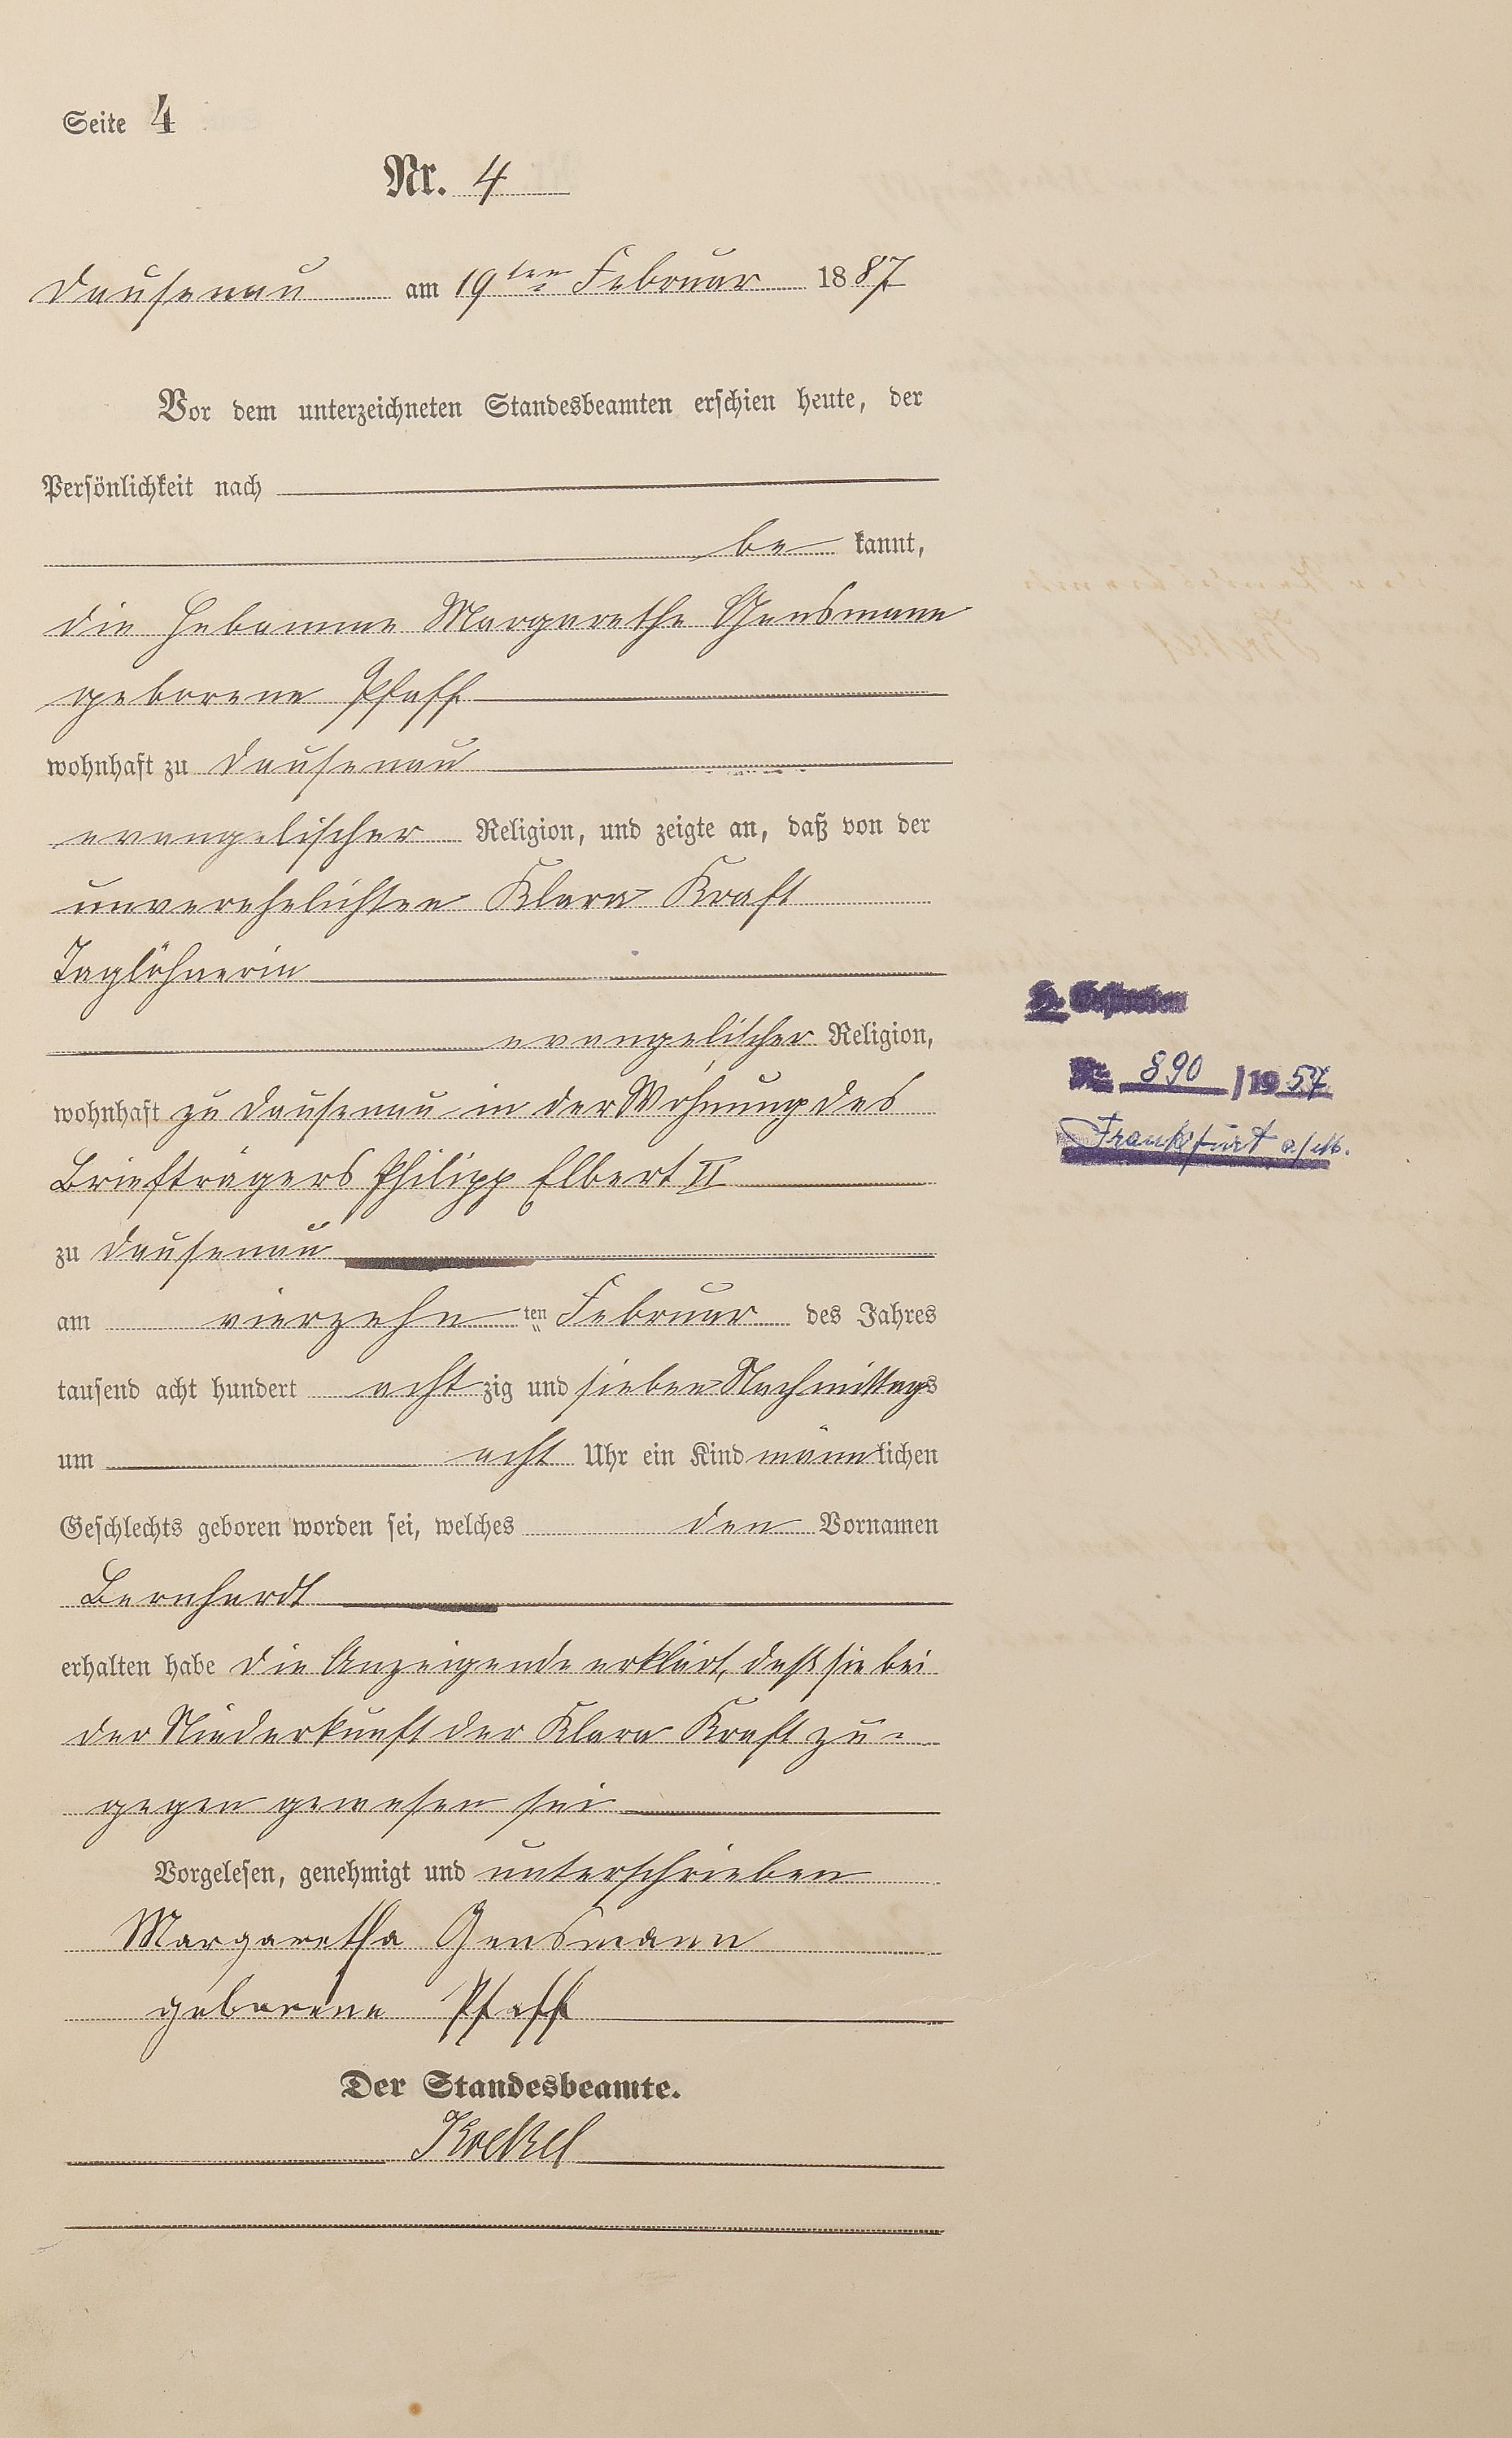 Seite 4
Nr. 4
Dausenau am 19ten Februar 1887
Vor dem unterzeichneten Standesbeamten erschien heute, der
Persönlichkeit nach
be kannt,
die Hebamme Margarethe Gensmann
geborene Pfaff
wohnhaft zu Dausenau
evangelischer Religion, und zeigte an, daß von der
unverehelichten Klara Kraft
Taglöhnerin
evangelischer Religion,
wohnhaft zu Dausenau in der Wohnung des
Briefträgers Philipp Elbert II
zu Dausenau
am vierzehn ten Februar des Jahres
tausend acht hundert acht zig und sieben Nachmittags
um acht Uhr ein Kind männlichen
Geschlechts geboren worden sei, welches den Vornamen
Bernhardt
erhalten habe die Anzeigende erklärt, daß sie bei
der Niederkunft der Klara Kraft zu=
gegen gewesen sei
Vorgelesen, genehmigt und unterschrieben
Margaretha Gensmann
geborene Pfaff
Der Standesbeamte.
Gestorben
Nr. 890 /1957
Frankfurt a/M.